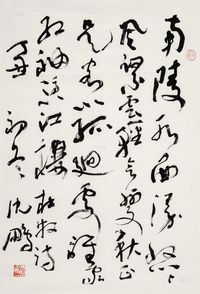 南陵水面漫悠々
風緊雲輕欲變秋正
是客心孤迥處誰家
紅袖憑江樓 杜牧詩
丁丑初冬 沈鵬